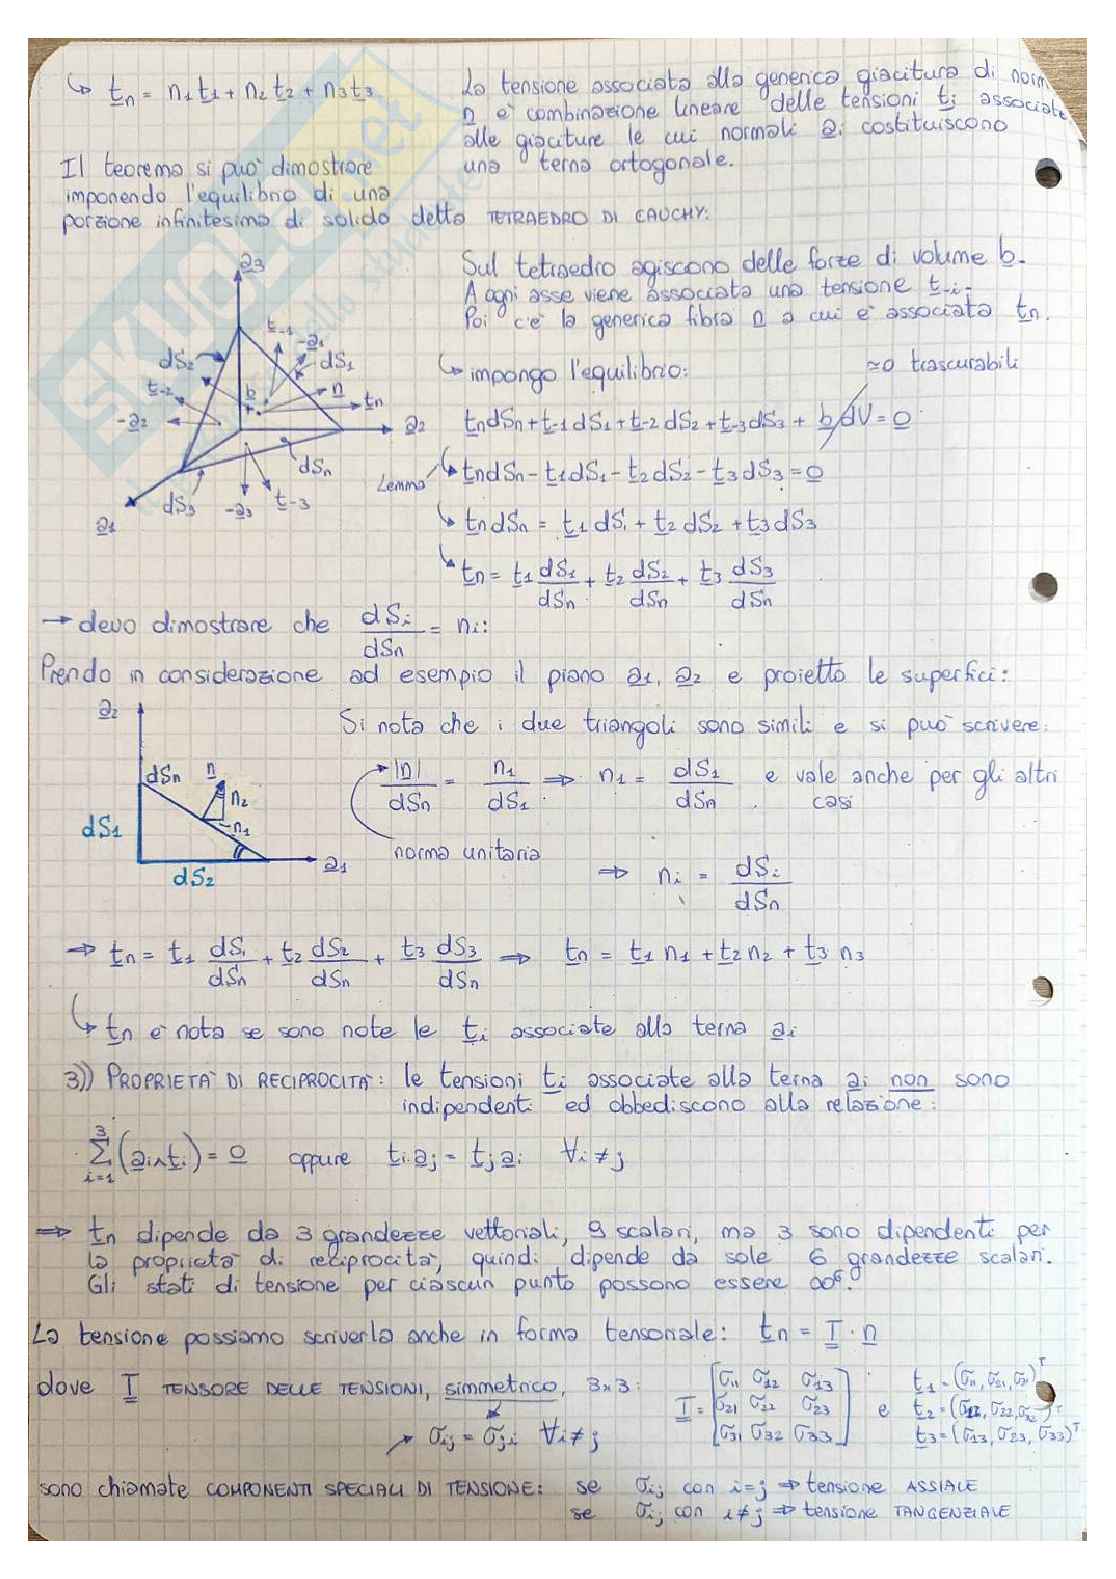 ↳ t̲n = n1 t̲1 + n2 t̲2 + n3 t̲3
La tensione associata alla generica giacitura di norm
n̲ e' combinazione lineare delle tensioni t̲i associate
alle giaciture le cui normali a̲i costituiscono
una terna ortogonale.
Il teorema si puo' dimostrare
imponendo l'equilibrio di una
porzione infinitesima di solido detta TETRAEDRO DI CAUCHY:
a̲3
t̲-1
-a̲1
dS2
dS1
t̲-2
b̲
n̲
t̲n
-a̲2
a̲2
dSn
dS3
-a̲3
t̲-3
a̲1
Sul tetraedro agiscono delle forze di volume b̲.
A ogni asse viene associata una tensione t̲-i.
Poi c'e' la generica fibra n̲ a cui e' associata t̲n.
↳ impongo l'equilibrio:
≃0 trascurabili
t̲n dSn + t̲-1 dS1 + t̲-2 dS2 + t̲-3 dS3 + b̲ dV = 0̲
Lemma ↳ t̲n dSn - t̲1 dS1 - t̲2 dS2 - t̲3 dS3 = 0̲
↳ t̲n dSn = t̲1 dS1 + t̲2 dS2 + t̲3 dS3
↳ t̲n = t̲1 dS1/dSn + t̲2 dS2/dSn + t̲3 dS3/dSn
→ devo dimostrare che dSi/dSn = ni:
Prendo in considerazione ad esempio il piano a̲1, a̲2 e proietto le superfici:
a̲2
dSn
n̲
n2
n1
dS1
dS2
a̲1
Si nota che i due triangoli sono simili e si puo' scrivere:
|n̲|/dSn = n1/dS1 ⇒ n1 = dS1/dSn e vale anche per gli altri
casi
norma unitaria
⇒ ni = dSi/dSn
⇒ t̲n = t̲1 dS1/dSn + t̲2 dS2/dSn + t̲3 dS3/dSn ⇒ t̲n = t̲1 n1 + t̲2 n2 + t̲3 n3
↳ t̲n e' nota se sono note le t̲i associate alla terna a̲i
3)) PROPRIETA' DI RECIPROCITA': le tensioni t̲i associate alla terna a̲i non sono
indipendenti ed obbediscono alla relazione:
Σ i=1 3 (a̲i ∧ t̲i) = 0̲ oppure t̲i a̲j = t̲j a̲i ∀i≠j
⇒ t̲n dipende da 3 grandezze vettoriali, 9 scalari, ma 3 sono dipendenti per
la proprieta' di reciprocita', quindi dipende da sole 6 grandezze scalari.
Gli stati di tensione per ciascun punto possono essere ∞⁶.
La tensione possiamo scriverla anche in forma tensoriale: t̲n = T̲ · n̲
dove T̲ TENSORE DELLE TENSIONI, simmetrico, 3x3:
T̲ = [σ11 σ12 σ13
σ21 σ22 σ23
σ31 σ32 σ33]
e
t̲1 = (σ11, σ21, σ31)ᵀ
t̲2 = (σ12, σ22, σ32)ᵀ
t̲3 = (σ13, σ23, σ33)ᵀ
↗ σij = σji ∀i≠j
sono chiamate COMPONENTI SPECIALI DI TENSIONE: se σij con i=j ⇒ tensione ASSIALE
se σij con i≠j ⇒ tensione TANGENZIALE